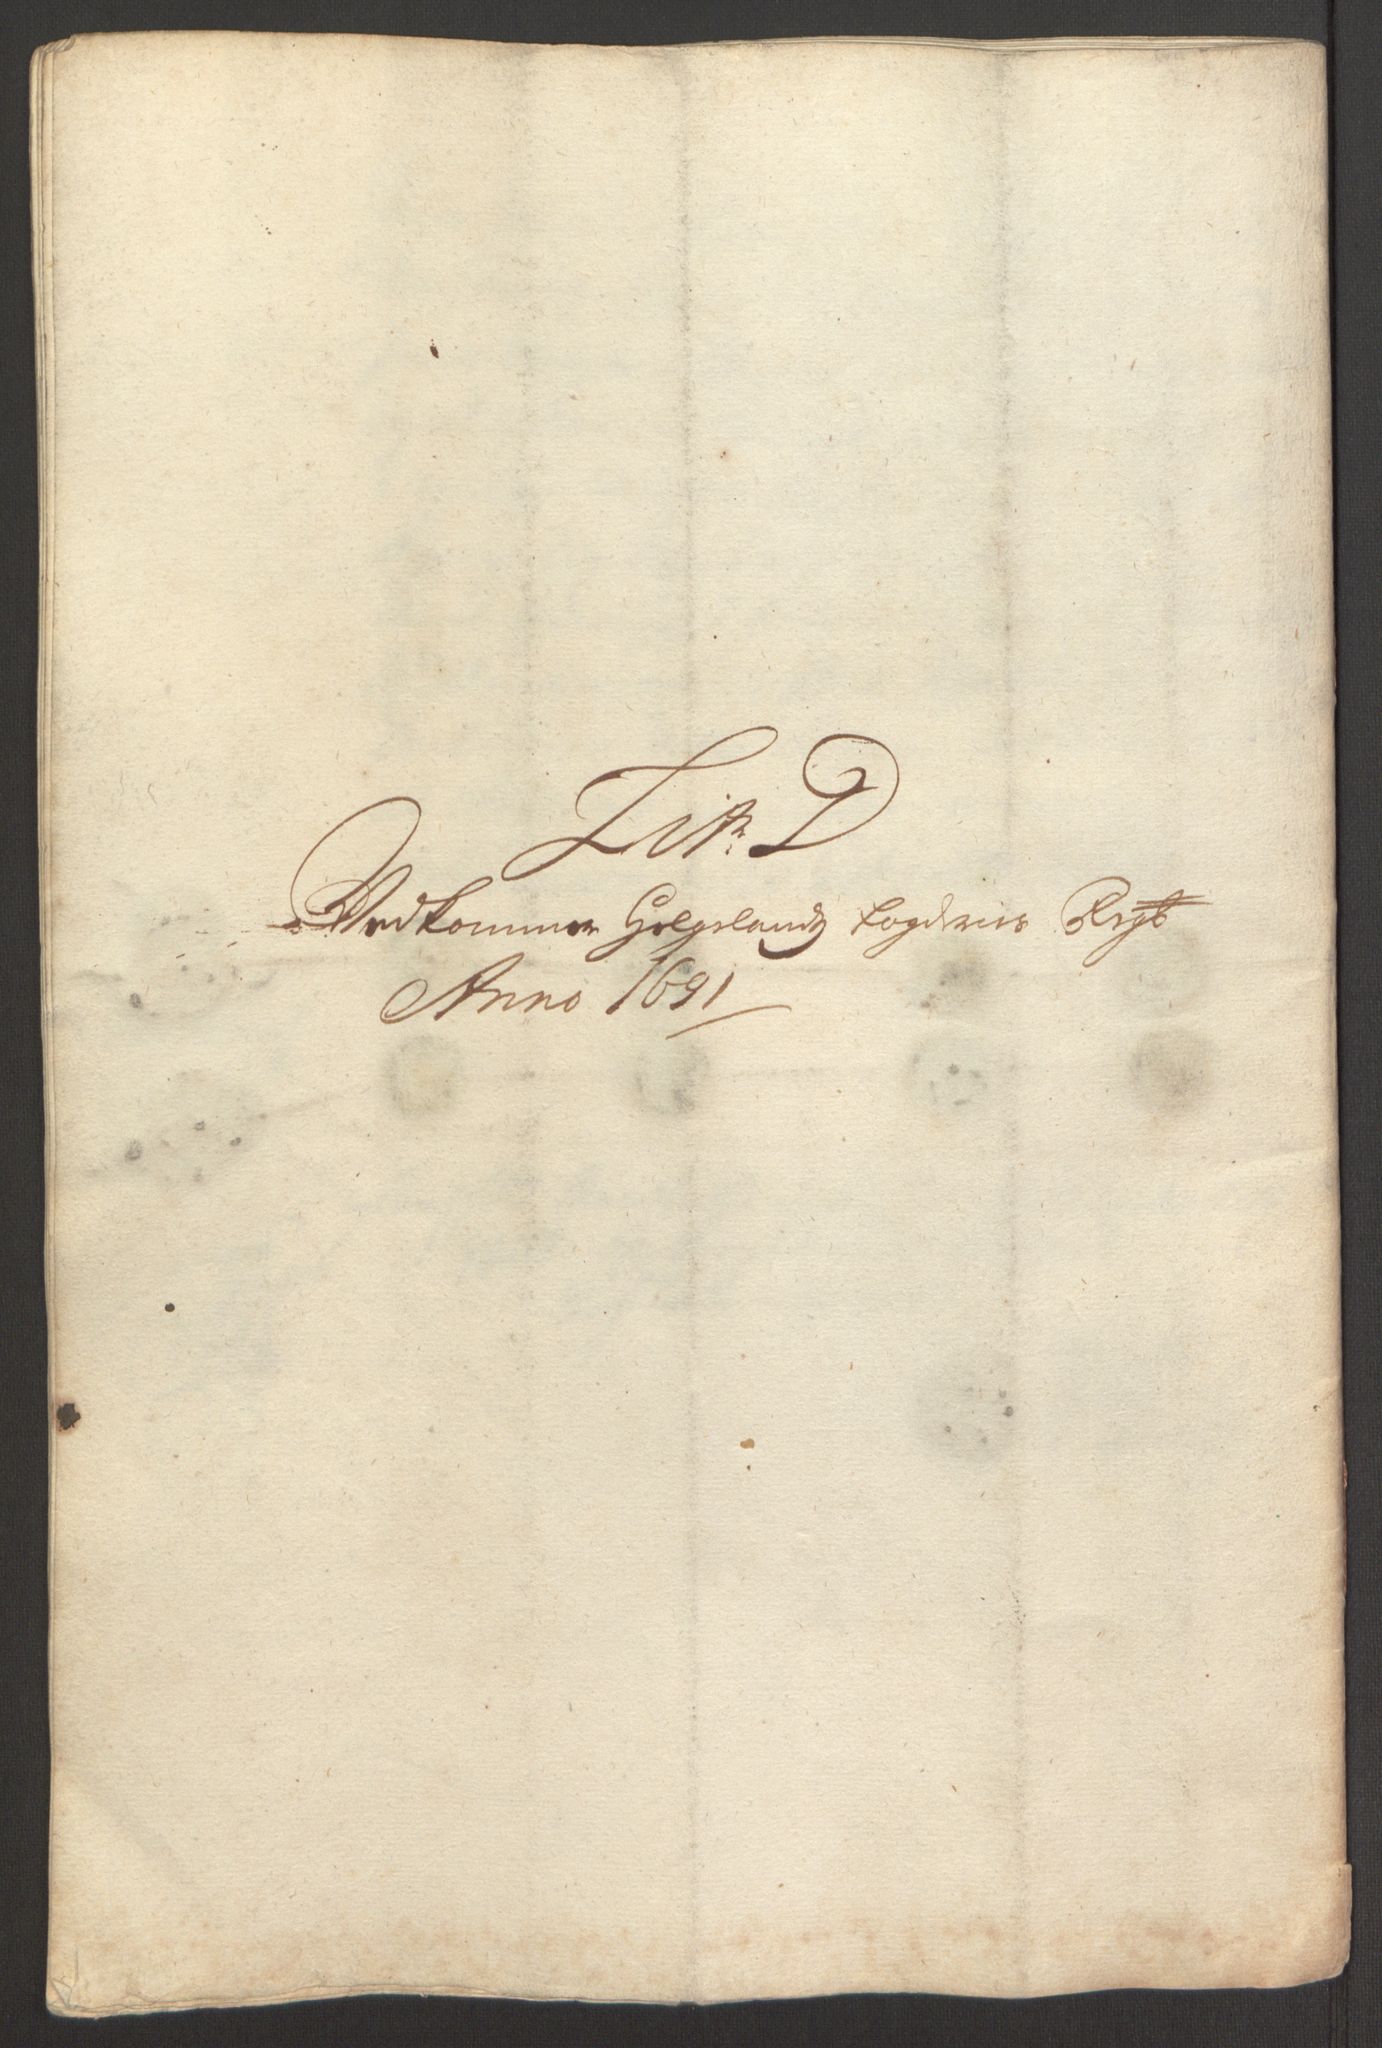 Litr: D
Vedkommer Helgelandz fogderies Regsk
Anno 1691